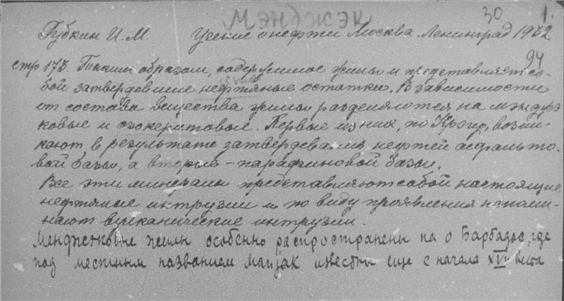 Мэнджэк
30 1.
Губкин И.М Учение о нефти Москва Ленинград 1932
94
стр 175. Таким образом, содержимое жилы и представляет со-
бой затвердевшие нефтяные остатки. В зависимости
от состава вещества жилы разделяются на мэндже-
ковые и озокеритовые. Первые из них, по возни-
кают в результате затвердевания нефтей асфальто-
вой базы, а вторые - парафиновой базы.
Все эти минералы представляют собой настоящие
нефтяные интрузии и по виду проявления напоми-
нают вулканические интрузии.
Менджековые жилы особенно распространены на о Барбадос, где
под местным названием известны еще с начала века